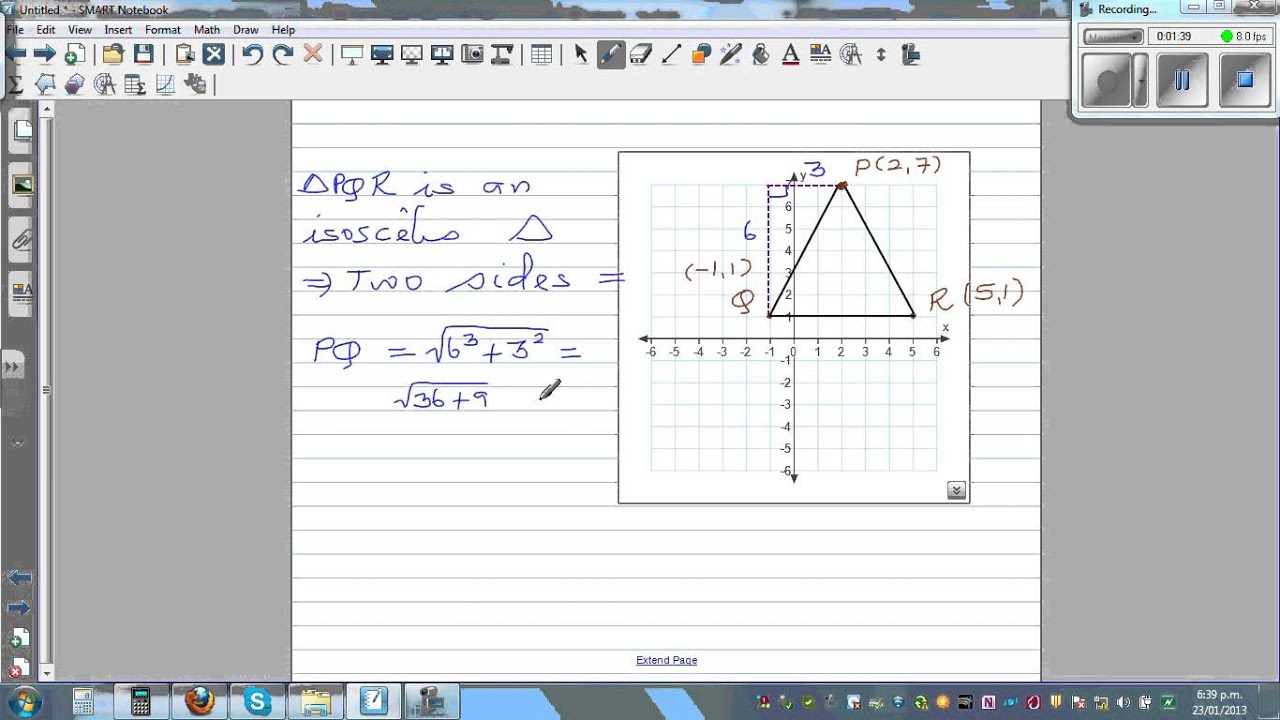 Untitled * - SMART Notebook
File Edit View Insert Format Math Draw Help
Recording...
0:01:39 8.0 fps
ΔPQR is an
isoscêles Δ
⇒ Two sides =
PQ = √6³+3² =
√36+9
3 P(2,7)
y
6
6
5
4
(-1,1)
3
2
Q
1
R (5,1)
x
-6 -5 -4 -3 -2 -1 0 1 2 3 4 5 6
-1
-2
-3
-4
-5
-6
Extend Page
6:39 p.m.
23/01/2013